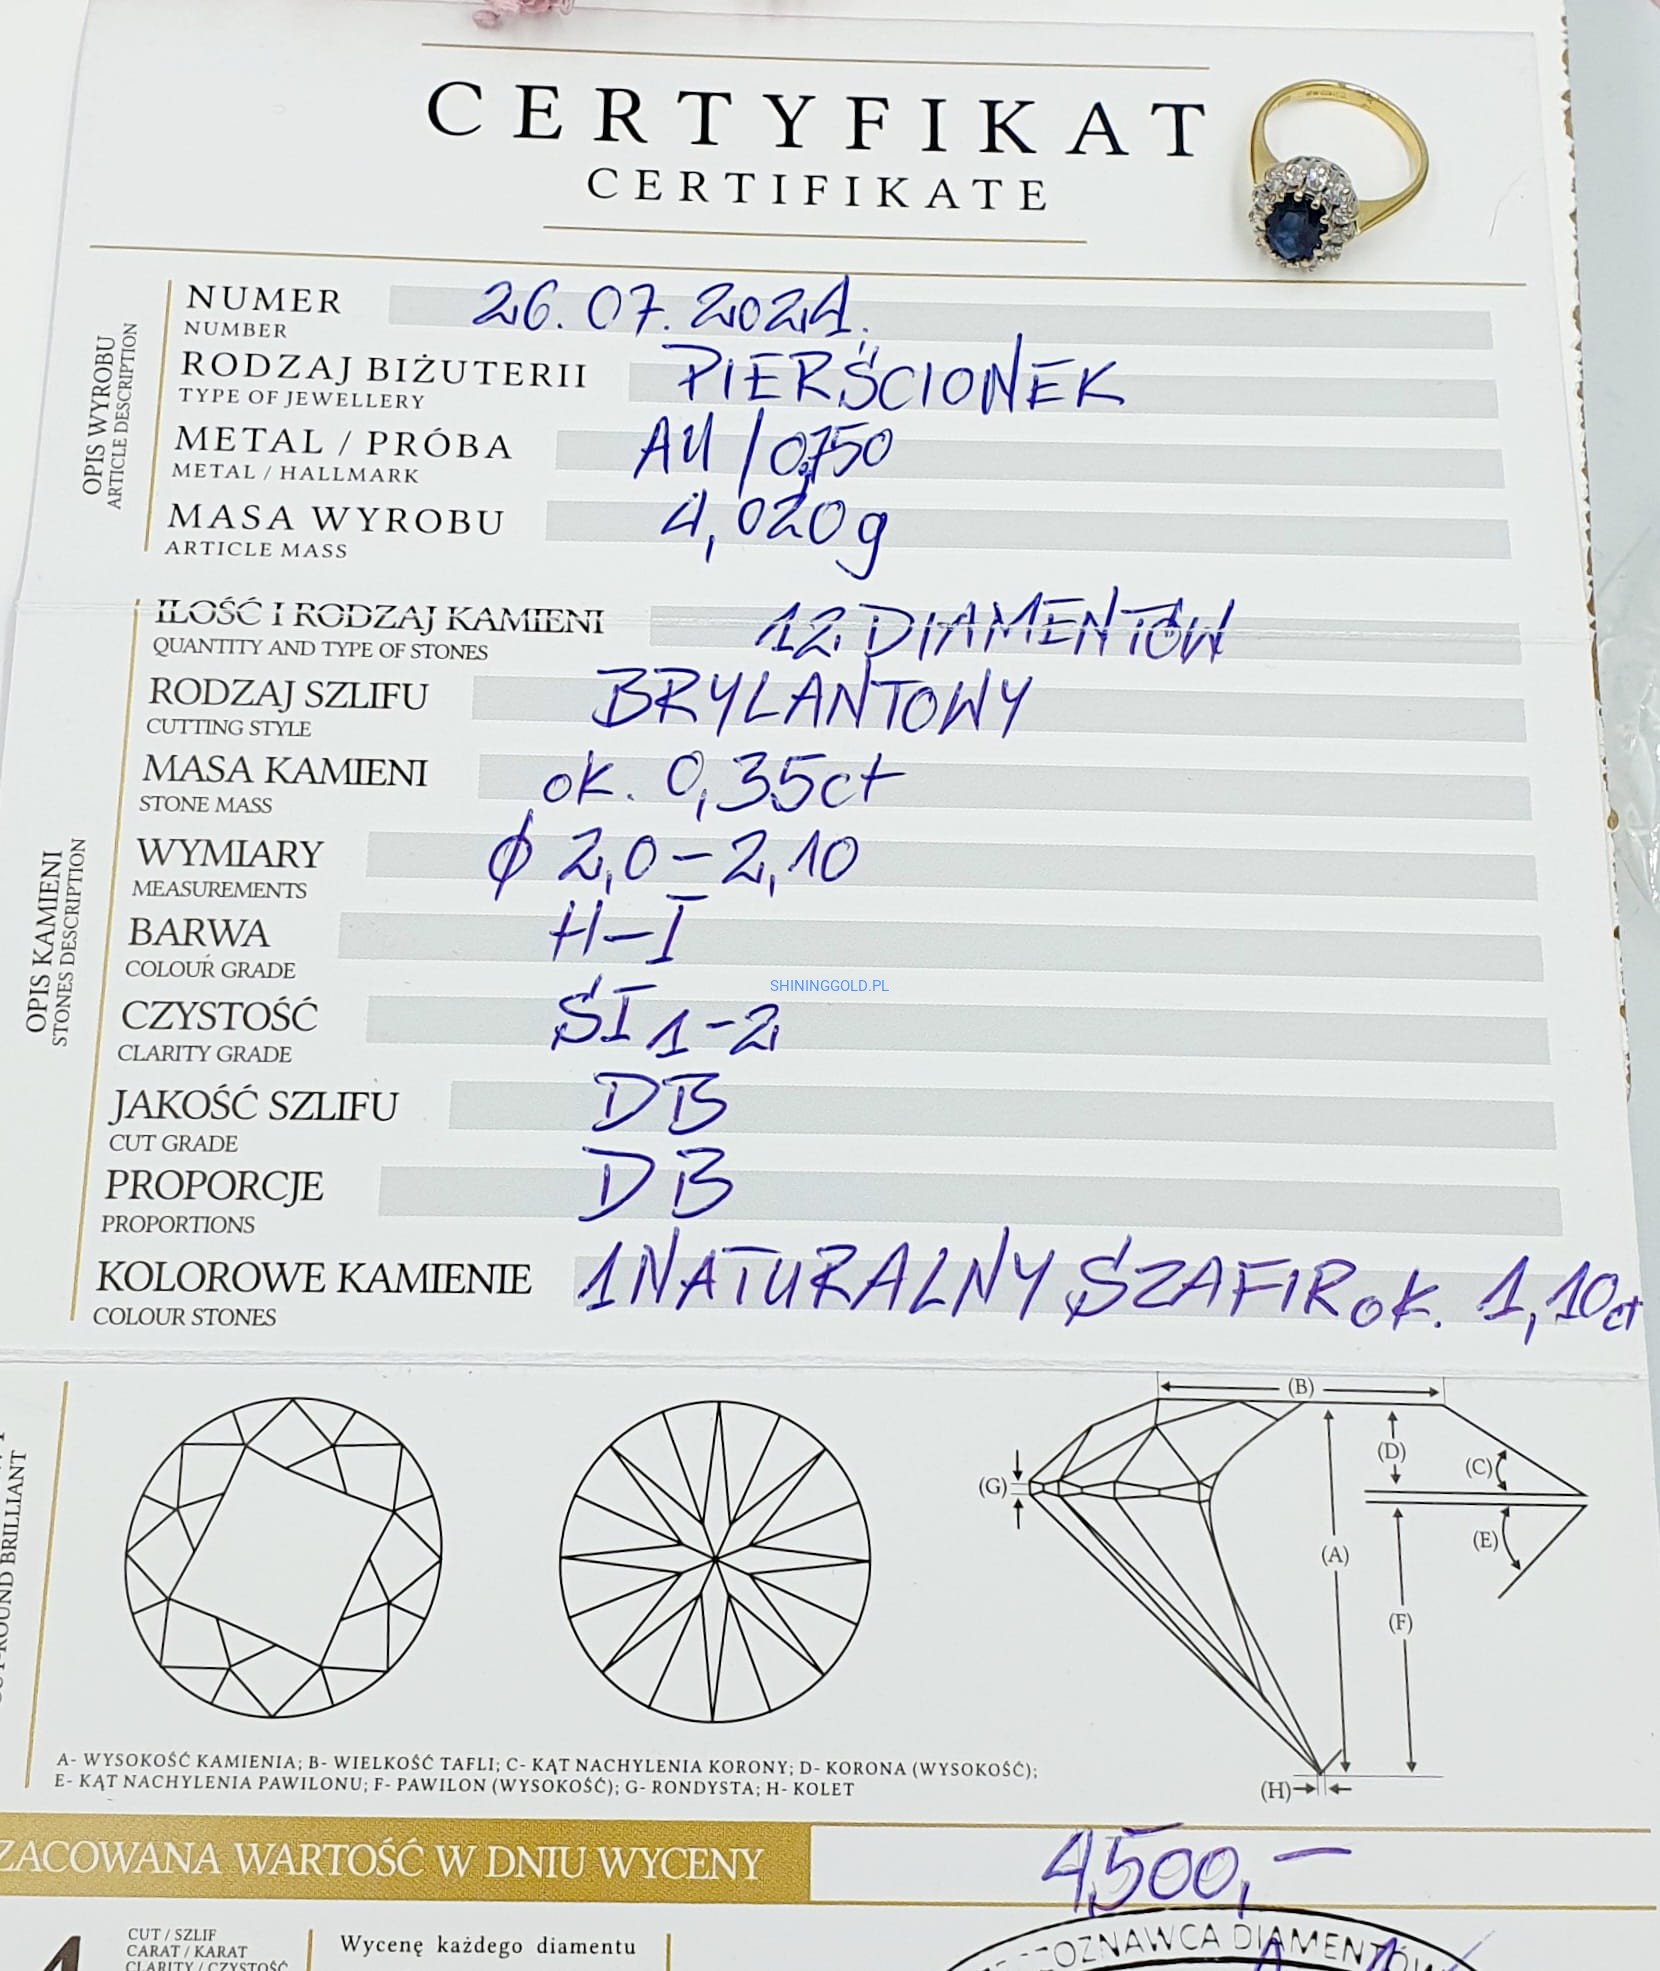 CERTYFIKAT
CERTIFIKATE
OPIS WYROBU
ARTICLE DESCRIPTION
NUMER 26.07.2024.
NUMBER
RODZAJ BIŻUTERII PIERŚCIONEK
TYPE OF JEWELLERY
METAL / PRÓBA AU / 0,750
METAL / HALLMARK
MASA WYROBU 4,020g
ARTICLE MASS
OPIS KAMIENI
STONES DESCRIPTION
ILOŚĆ I RODZAJ KAMIENI 12 DIAMENTÓW
QUANTITY AND TYPE OF STONES
RODZAJ SZLIFU BRYLANTOWY
CUTTING STYLE
MASA KAMIENI ok. 0,35ct
STONE MASS
WYMIARY ϕ 2,0-2,10
MEASUREMENTS
BARWA H-I
COLOUR GRADE
SHININGGOLD.PL
CZYSTOŚĆ SI 1-2
CLARITY GRADE
JAKOŚĆ SZLIFU DB
CUT GRADE
PROPORCJE DB
PROPORTIONS
KOLOROWE KAMIENIE 1 NATURALNY SZAFIR ok. 1,10ct
COLOUR STONES
ROUND BRILLIANT
(B)
(D)
(C)
(G)
(E)
(A)
(F)
(H)
A- WYSOKOŚĆ KAMIENIA; B- WIELKOŚĆ TAFLI; C- KĄT NACHYLENIA KORONY; D- KORONA (WYSOKOŚĆ);
E- KĄT NACHYLENIA PAWILONU; F- PAWILON (WYSOKOŚĆ); G- RONDYSTA; H- KOLET
ZACOWANA WARTOŚĆ W DNIU WYCENY 4500,-
4
CUT / SZLIF
CARAT / KARAT
CLARITY / CZYSTOŚĆ
Wycenę każdego diamentu
OZNAWCA DIAMENTÓW